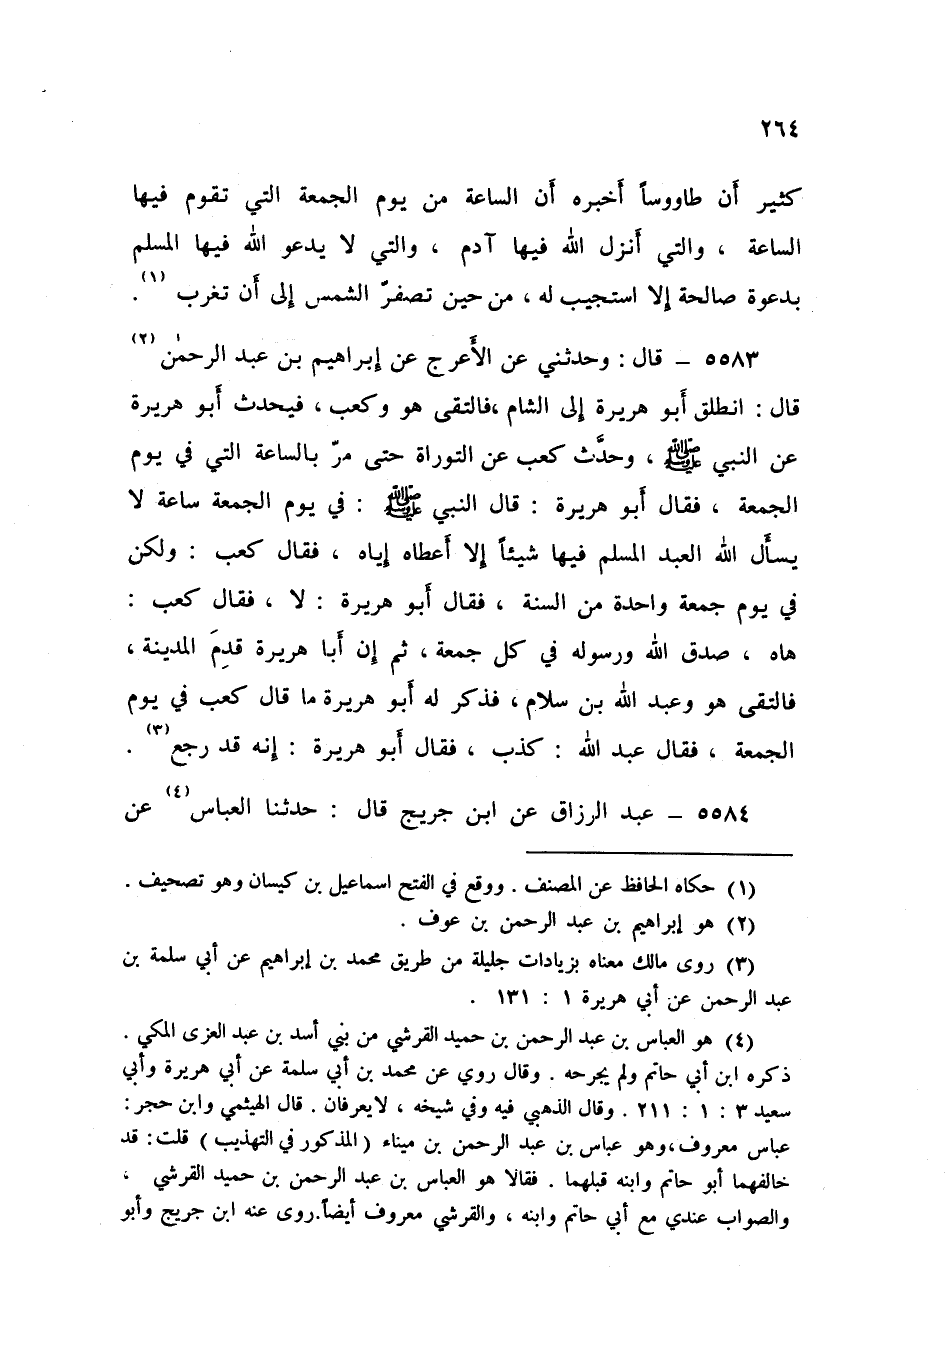 ٢٦٤
كثير أَن طاووساً أَخبره أَن الساعة من يوم الجمعة التي تقوم فيها
الساعة ، والتي أَنزل الله فيها آدم ، والتي لا يدعو الله فيها المسلم
بدعوة صالحة إلا استجيب له ، من حين تصفرّ الشمس إلى أَن تغرب (١) .
٥٥٨٣ – قال : وحدثني عن الأَعرج عن إبراهيم بن عبد الرحمٰن (٢)
قال : انطلق أَبو هريرة إلى الشام ،فالتقى هو وكعب ، فيحدث أَبو هريرة
عن النبي ﷺ ، وحدَّث كعب عن التوراة حتى مرّ بالساعة التي في يوم
الجمعة ، فقال أَبو هريرة : قال النبي ﷺ : في يوم الجمعة ساعة لا
يسأَل الله العبد المسلم فيها شيئاً إلا أَعطاه إياه ، فقال كعب : ولكن
في يوم جمعة واحدة من السنة ، فقال أَبو هريرة : لا ، فقال كعب :
هاه ، صدق الله ورسوله في كل جمعة ، ثم إن أَبا هريرة قدِمَ المدينة ،
فالتقى هو وعبد الله بن سلام ، فذكر له أَبو هريرة ما قال كعب في يوم
الجمعة ، فقال عبد الله : كذب ، فقال أَبو هريرة : إنه قد رجع (٣) .
٥٥٨٤ – عبد الرزاق عن ابن جريج قال : حدثنا العباس (٤) عن
(١) حكاه الحافظ عن المصنف . ووقع في الفتح اسماعيل بن كيسان وهو تصحيف .
(٢) هو إبراهيم بن عبد الرحمن بن عوف .
(٣) روى مالك معناه بزيادات جليلة من طريق محمد بن إبراهيم عن أبي سلمة بن
عبد الرحمن عن أبي هريرة ١ : ١٣١ .
(٤) هو العباس بن عبد الرحمن بن حميد القرشي من بني أسد بن عبد العزى المكي .
ذكره ابن أبي حاتم ولم يجرحه . وقال روي عن محمد بن أبي سلمة عن أبي هريرة وأبي
سعيد ٣ : ١ : ٢١١ . وقال الذهبي فيه وفي شيخه ، لايعرفان . قال الهيثمي وابن حجر :
عباس معروف ،وهو عباس بن عبد الرحمن بن ميناء ( المذكور في التهذيب ) قلت : قد
خالفهما أبو حاتم وابنه قبلهما . فقالا هو العباس بن عبد الرحمن بن حميد القرشي ،
والصواب عندي مع أبي حاتم وابنه ، والقرشي معروف أيضاً.روى عنه ابن جريج وأبو